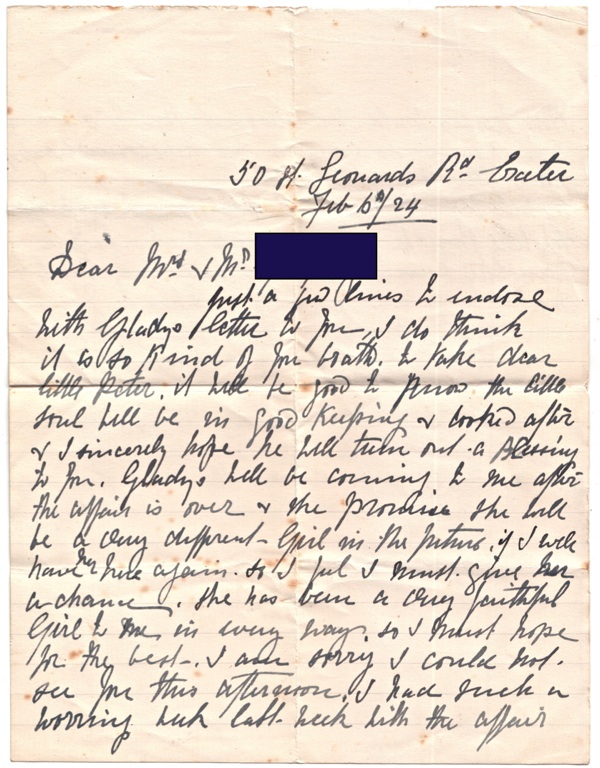 50 St. Leonards Rd Exeter
Feb 6th/24
Dear Mrs & Mr
just a few lines to enclose
with Gladys letter to you, I do think
it is so kind of you both. to take dear
little Peter. it will be good to know the little
soul will be in good keeping & looked after
& I sincerely hope he will turn out a Blessing
to you. Gladys will be coming to me after
the affair is over & she promise she will
be a very different Girl in the future, if I will
have her here again. so I feel I must give her
a chance, she has been a very faithful
Girl to me, in every way, so I must hope
for the best. I am sorry I could not.
see you this afternoon, I had such a
worring week last week with the affair